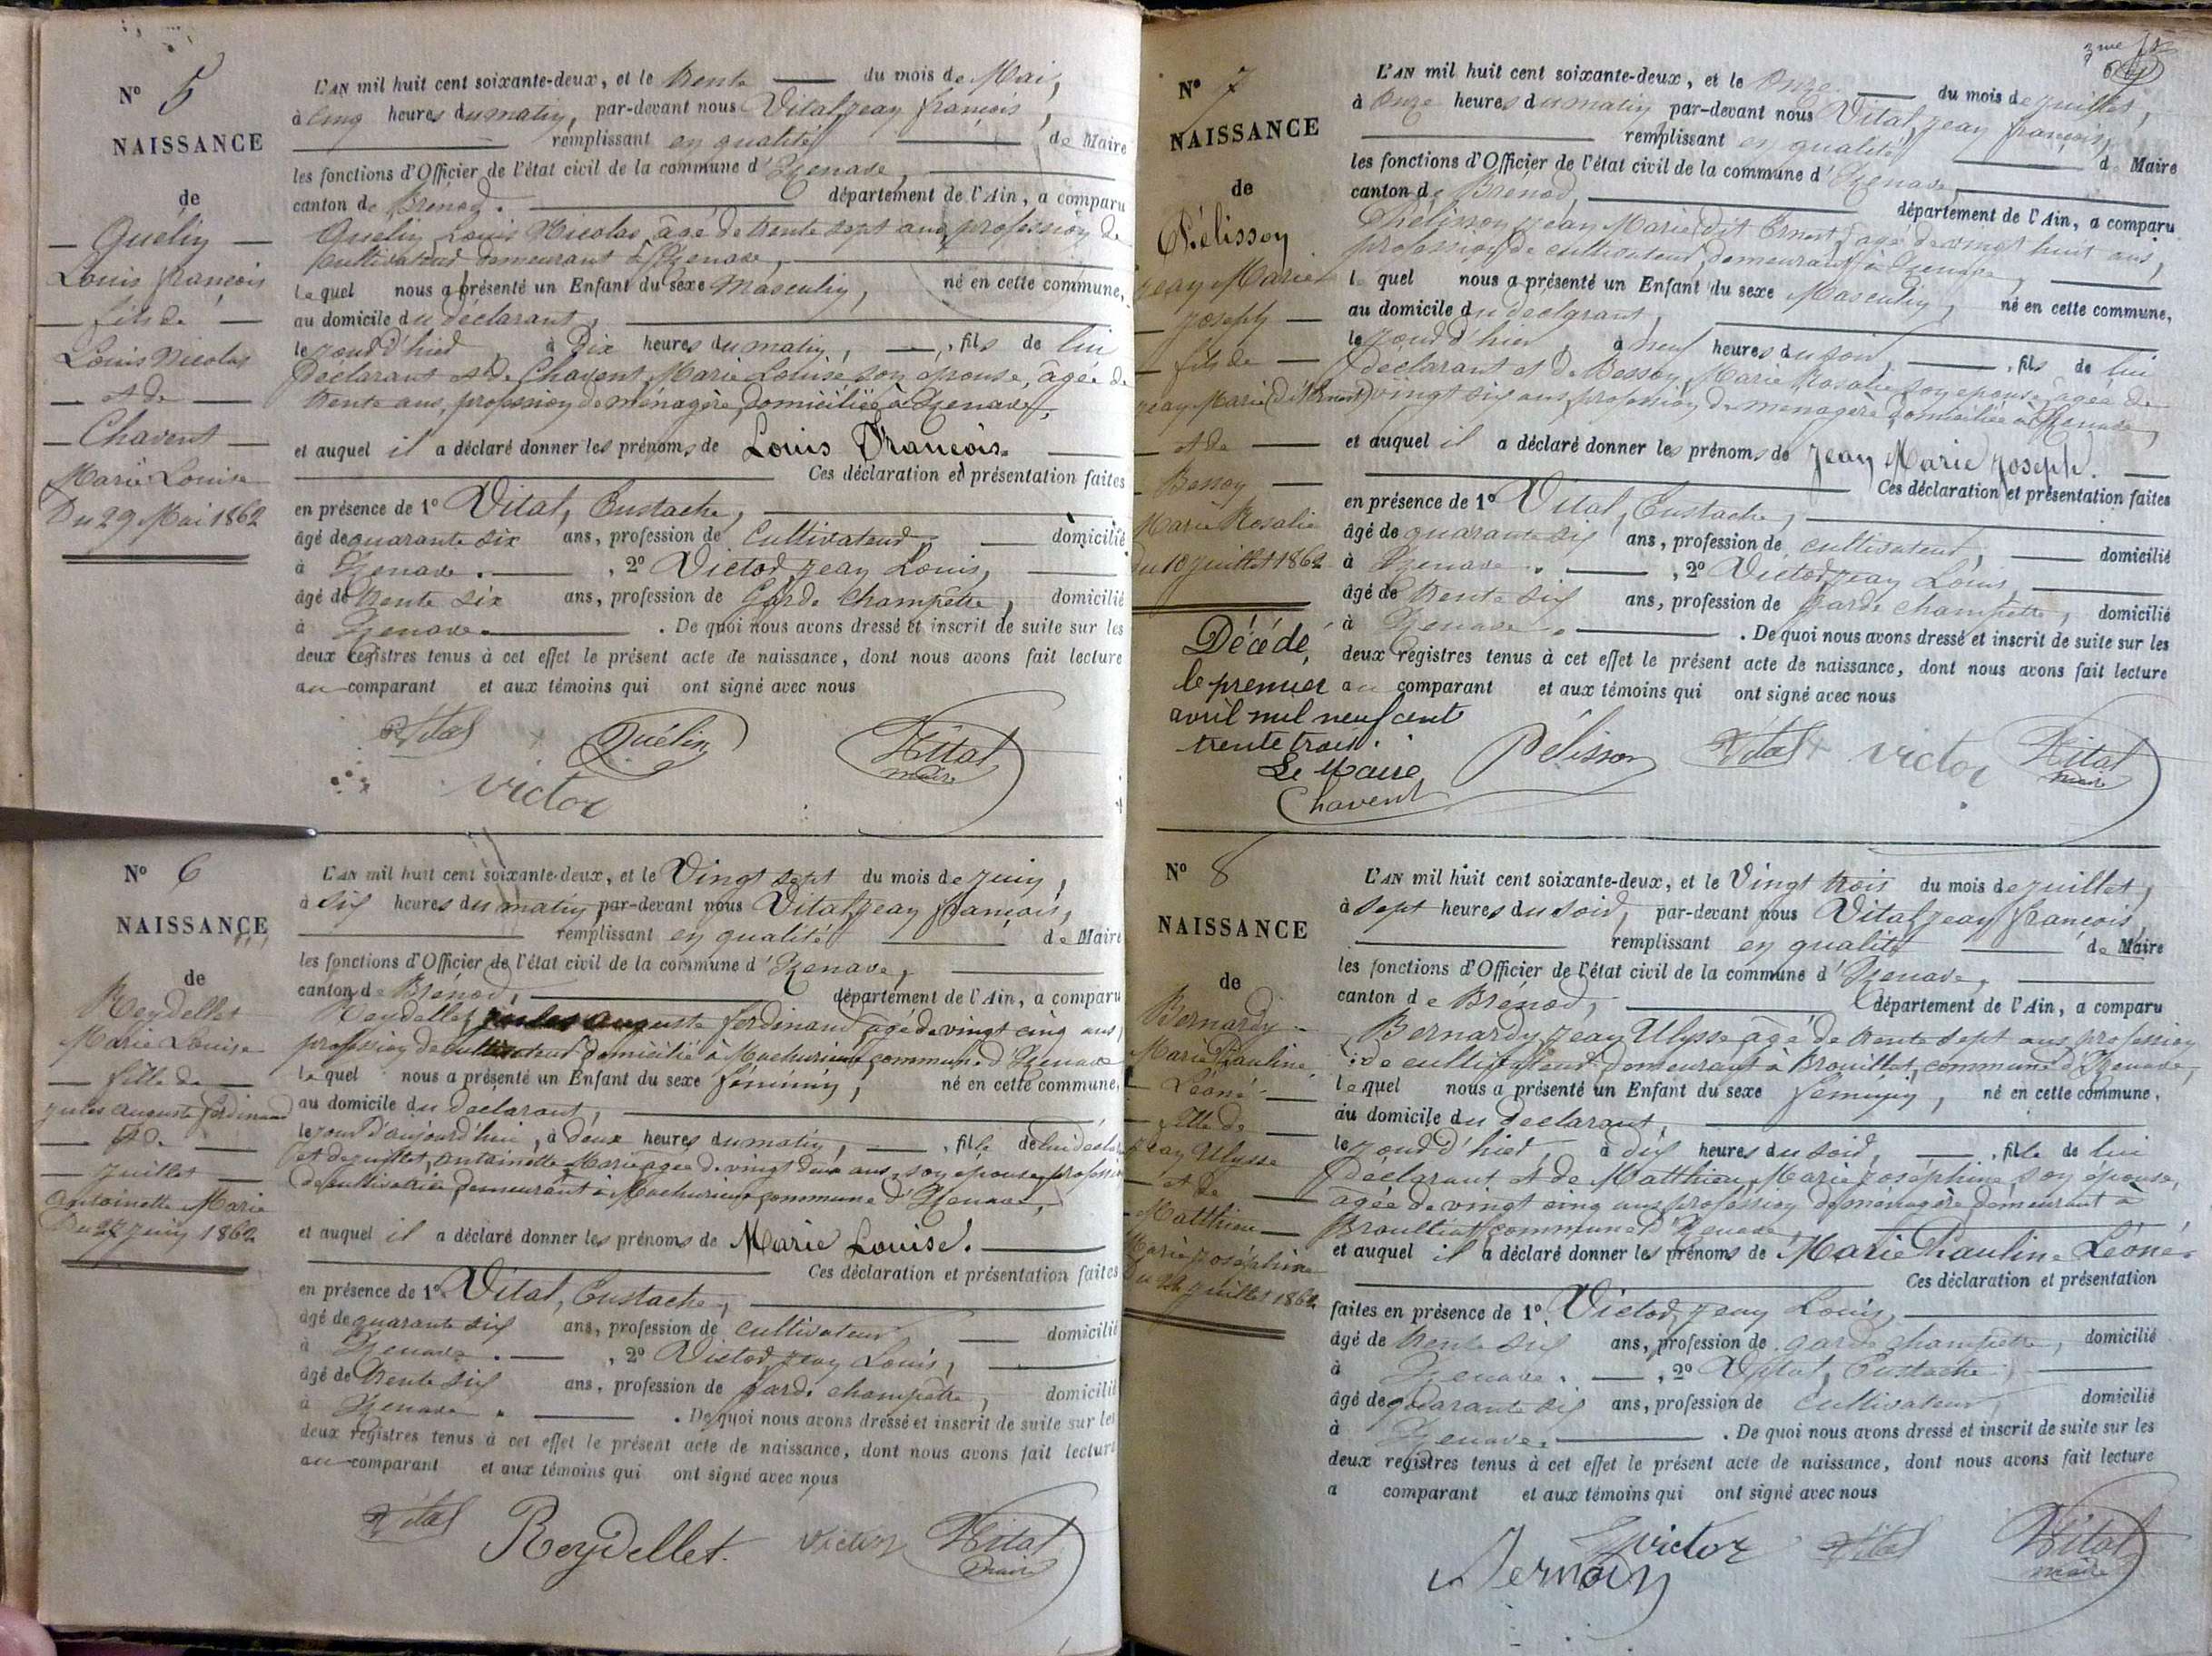 N° 5
NAISSANCE
de
Quélin
Louis françois
fils de
Louis Nicolas
et de
Chavent
Marie Louise
Du 29 Mai 1862
L'AN mil huit cent soixante-deux, et le trente du mois de Mai,
à cinq heures du matin, par-devant nous Vital, jean françois,
remplissant en qualité de Maire
les fonctions d'Officier de l'état civil de la commune d'Izenave,
canton de Brénod. département de l'Ain, a comparu
Quelin, Louis Nicolas, âgé de trente sept ans, profession de
cultivateur demeurant à Izenave,
lequel nous a présenté un Enfant du sexe Masculin, né en cette commune,
au domicile du déclarant,
le jour d'hier à dix heures du matin, fils de lui
Déclarant et de Chavent, Marie Louise son épouse, âgée de
trente ans, profession de ménagère, domiciliée à Izenave,
et auquel il a déclaré donner les prénoms de Louis François.
Ces déclaration et présentation faites
en présence de 1° Vital, Eustache,
âgé de quarante six ans, profession de Cultivateur, domicilié
à Izenave. , 2° Victor, jean Louis,
âgé de trente six ans, profession de Garde Champêtre, domicilié
à Izenave. . De quoi nous avons dressé et inscrit de suite sur les
deux registres tenus à cet effet le présent acte de naissance, dont nous avons fait lecture
au comparant et aux témoins qui ont signé avec nous
Vital Quélin Vital
maire
victor
N° 6
NAISSANCE
de
Reydellet
Marie Louise
fille de
jules auguste ferdinand
et de
juillet
antoinette Marie
Du 27 juin 1862
L'AN mil huit cent soixante-deux, et le Vingt sept du mois de juin,
à six heures du matin, par-devant nous Vital, jean françois,
remplissant en qualité de Maire
les fonctions d'Officier de l'état civil de la commune d'Izenave,
canton de Brénod, département de l'Ain, a comparu
Reydellet, jules auguste ferdinand, âgé de vingt cinq ans,
profession de cultivateur domicilié à Machurieux commune d'Izenave
lequel nous a présenté un Enfant du sexe féminin, né en cette commune,
au domicile du declarant,
le jour d'aujourd'hui, à deux heures du matin, , fille de lui déclarant
et de juillet, antoinette Marie agée de vingt deux ans, son epouse, profession
de cultivatrice demeurant à Machurieux commune d'Izenave,
et auquel il a déclaré donner les prénoms de Marie Louise.
Ces déclaration et présentation faites
en présence de 1° Vital, Eustache,
âgé de quarante six ans, profession de cultivateur domicilié
à Izenave. , 2° Victor, jean Louis,
âgé de trente six ans, profession de garde champêtre, domicilié
à Izenave. . De quoi nous avons dressé et inscrit de suite sur les
deux registres tenus à cet effet le présent acte de naissance, dont nous avons fait lecture
au comparant et aux témoins qui ont signé avec nous
Vital Reydellet. Victor Vital
maire
3me
N° 7
NAISSANCE
de
Pélisson
jean Marie
joseph
fils de
jean Marie (dit Ernest)
et de
Besson
Marie Rosalie
du 10 juillet 1862
Décédé
le premier
avril mil neuf cent
trente trois.
Le Maire
Chavent
L'AN mil huit cent soixante-deux, et le onze du mois de juillet,
à onze heures du matin par-devant nous Vital, jean françois,
remplissant en qualité de Maire
les fonctions d'Officier de l'état civil de la commune d'Izenave,
canton de Brénod, département de l'Ain, a comparu
Pelisson, jean Marie (dit Ernest), âgé de vingt huit ans,
profession de cultivateur, demeurant à Izenave,
lequel nous a présenté un Enfant du sexe Masculin, né en cette commune,
au domicile du declarant,
le jour d'hier, à neuf heures du soir, , fils de lui
déclarant et de Besson, Marie Rosalie son epouse, âgée de
vingt six ans, profession de ménagère domiciliée à Izenave,
et auquel il a déclaré donner les prénoms de jean Marie joseph.
Ces déclaration et présentation faites
en présence de 1° Vital, Eustache,
âgé de quarante six ans, profession de cultivateur, domicilié
à Izenave. , 2° Victor, jean Louis,
âgé de trente six ans, profession de garde champêtre, domicilié
à Izenave. . De quoi nous avons dressé et inscrit de suite sur les
deux registres tenus à cet effet le présent acte de naissance, dont nous avons fait lecture
au comparant et aux témoins qui ont signé avec nous
Pélisson Vital victor Vital
maire
N° 8
NAISSANCE
de
Bernardy
Marie Pauline
Léoné
fille de
jean Ulysse
et de
Matthieu
Marie joséphine
Du 22 juillet 1862
L'AN mil huit cent soixante-deux, et le Vingt trois du mois de juillet,
à sept heures du soir, par-devant nous Vital, jean françois
remplissant en qualité de Maire
les fonctions d'Officier de l'état civil de la commune d'Izenave,
canton de Brénod, département de l'Ain, a comparu
Bernardy, jean Ulysse âgé de trente sept ans profession
de cultivateur demeurant à Brouillat, commune d'Izenave,
lequel nous a présenté un Enfant du sexe féminin, né en cette commune,
au domicile du declarant,
le jour d'hier, à dix heures du soir, , fille de lui
Declarant et de Matthieu, Marie joséphine son épouse,
agée de vingt cinq ans profession de ménagère demeurant à
commune d'Izenave
et auquel il a déclaré donner les prénoms de Marie Pauline Léoné
Ces déclaration et présentation
faites en présence de 1° Victor, jean Louis,
âgé de trente six ans, profession de garde champêtre, domicilié
à Izenave. , 2° Vital, Eustache,
âgé de quarante six ans, profession de cultivateur, domicilié
à Izenave. . De quoi nous avons dressé et inscrit de suite sur les
deux registres tenus à cet effet le présent acte de naissance, dont nous avons fait lecture
a comparant et aux témoins qui ont signé avec nous
victor Vital Vital
maire